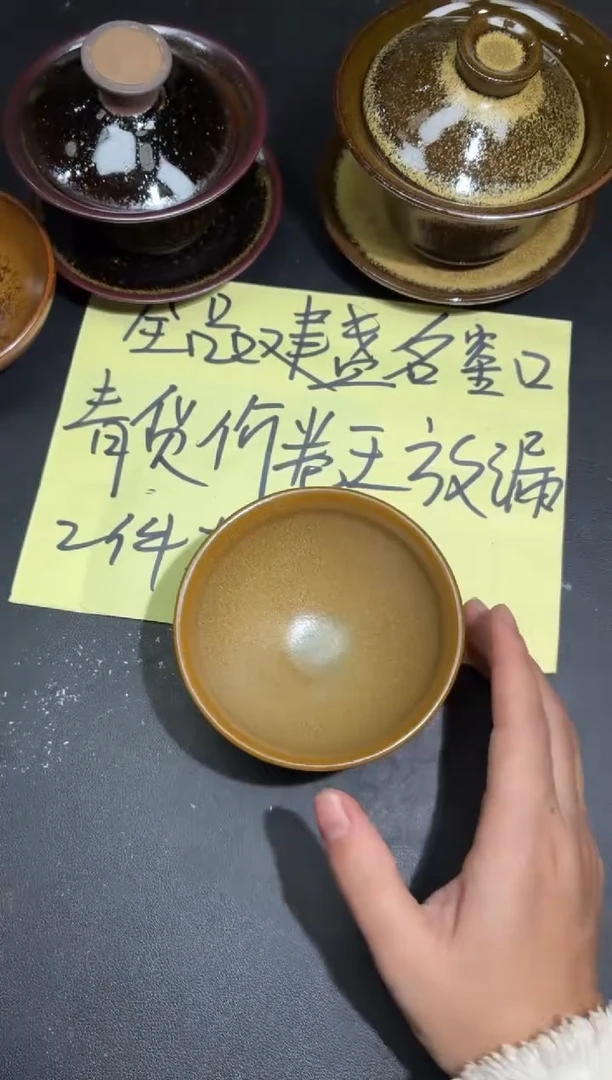 全品建盏名窑口
清货价卷王放漏
2件